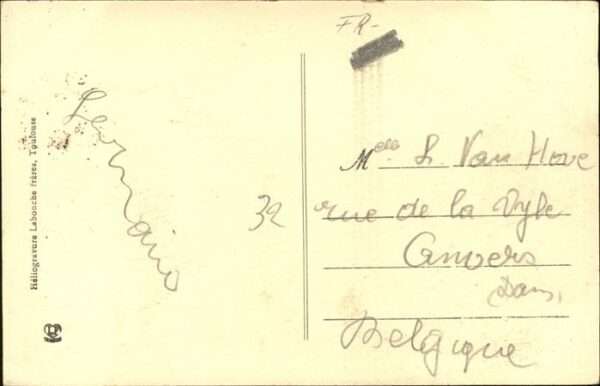 FR-
Héliogravure Labouche frères, Toulouse
Melle S. Van Hove
32 rue de la Dyle
Anvers
Belgique